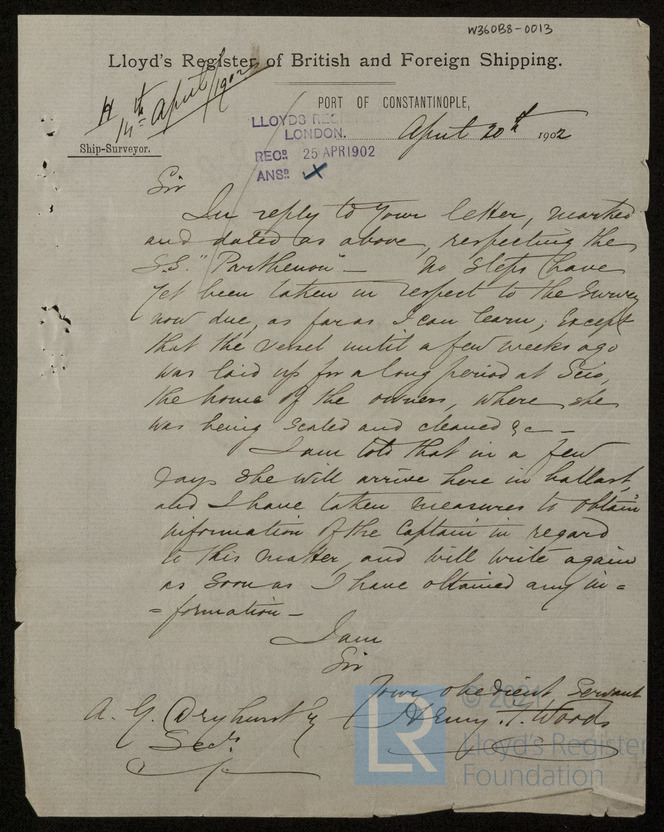 W360B8-0013
Lloyd's Register of British and Foreign Shipping.
H 14th April/1902
PORT OF CONSTANTINOPLE,
LLOYDS REG
LONDON.
April 20th 1902
Ship-Surveyor.
RECD 25 APR 1902
ANSD
Sir
In reply to your letter, marked
and dated as above, respecting the
S.S. "Parthenon" — No steps have
yet been taken in respect to the survey
now due, as far as I can learn; except
that the vessel until a few weeks ago
was laid up for a long period at Scio,
the home of the owners, where she
was being scaled and cleaned &c —
I am told that in a few
days she will arrive here in ballast,
and I have taken measures to obtain
information of the Captain in regard
to this matter, and will write again
as soon as I have obtained any in=
=formation —
I am
Sir
Your obedient Servant
A. G. Dryhurst Henry T. Woods
Secy
© 2021
LR Lloyd's Register
Foundation